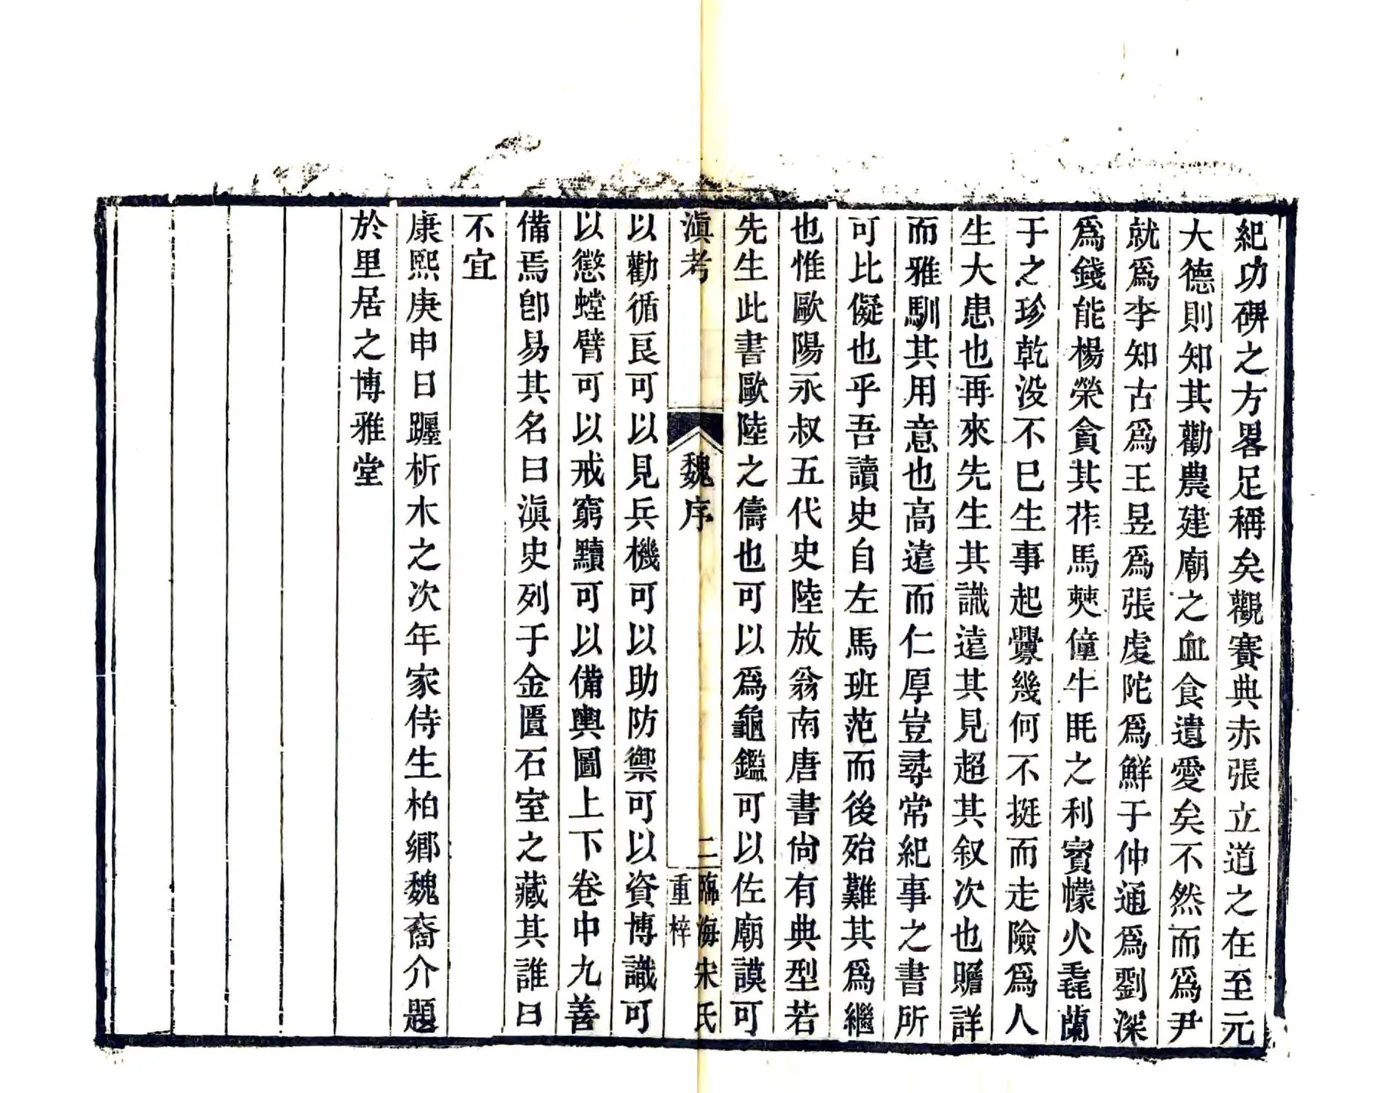 紀功碑之方畧足稱矣觀賽典赤張立道之在至元
大德則知其勸農建廟之血食遺愛矣不然而爲尹
就爲李知古爲王昱爲張虔陀爲鮮于仲通爲劉深
爲錢能楊榮貪其莋馬僰僮牛毦之利賓幏火毳蘭
于之珍乾没不巳生事起釁幾何不挺而走險爲人
生大患也再來先生其識遠其見超其叙次也贍詳
而雅馴其用意也高遠而仁厚豈尋常紀事之書所
可比儗也乎吾讀史自左馬班范而後殆難其爲繼
也惟歐陽永叔五代史陸放翁南唐書尙有典型若
先生此書歐陸之儔也可以爲龜鑑可以佐廟謨可
滇考
魏序
二
臨海宋氏
重梓
以勸循良可以見兵機可以助防禦可以資博識可
以懲螳臂可以戒窮黷可以備輿圖上下卷中九善
備焉卽易其名曰滇史列于金匱石室之藏其誰曰
不宜
康熙庚申日躔析木之次年家侍生柏鄉魏裔介題
於里居之博雅堂